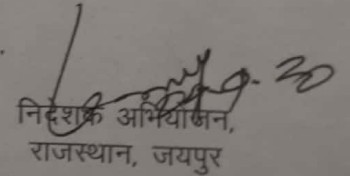 निदेशक अभियोजन,
राजस्थान, जयपुर